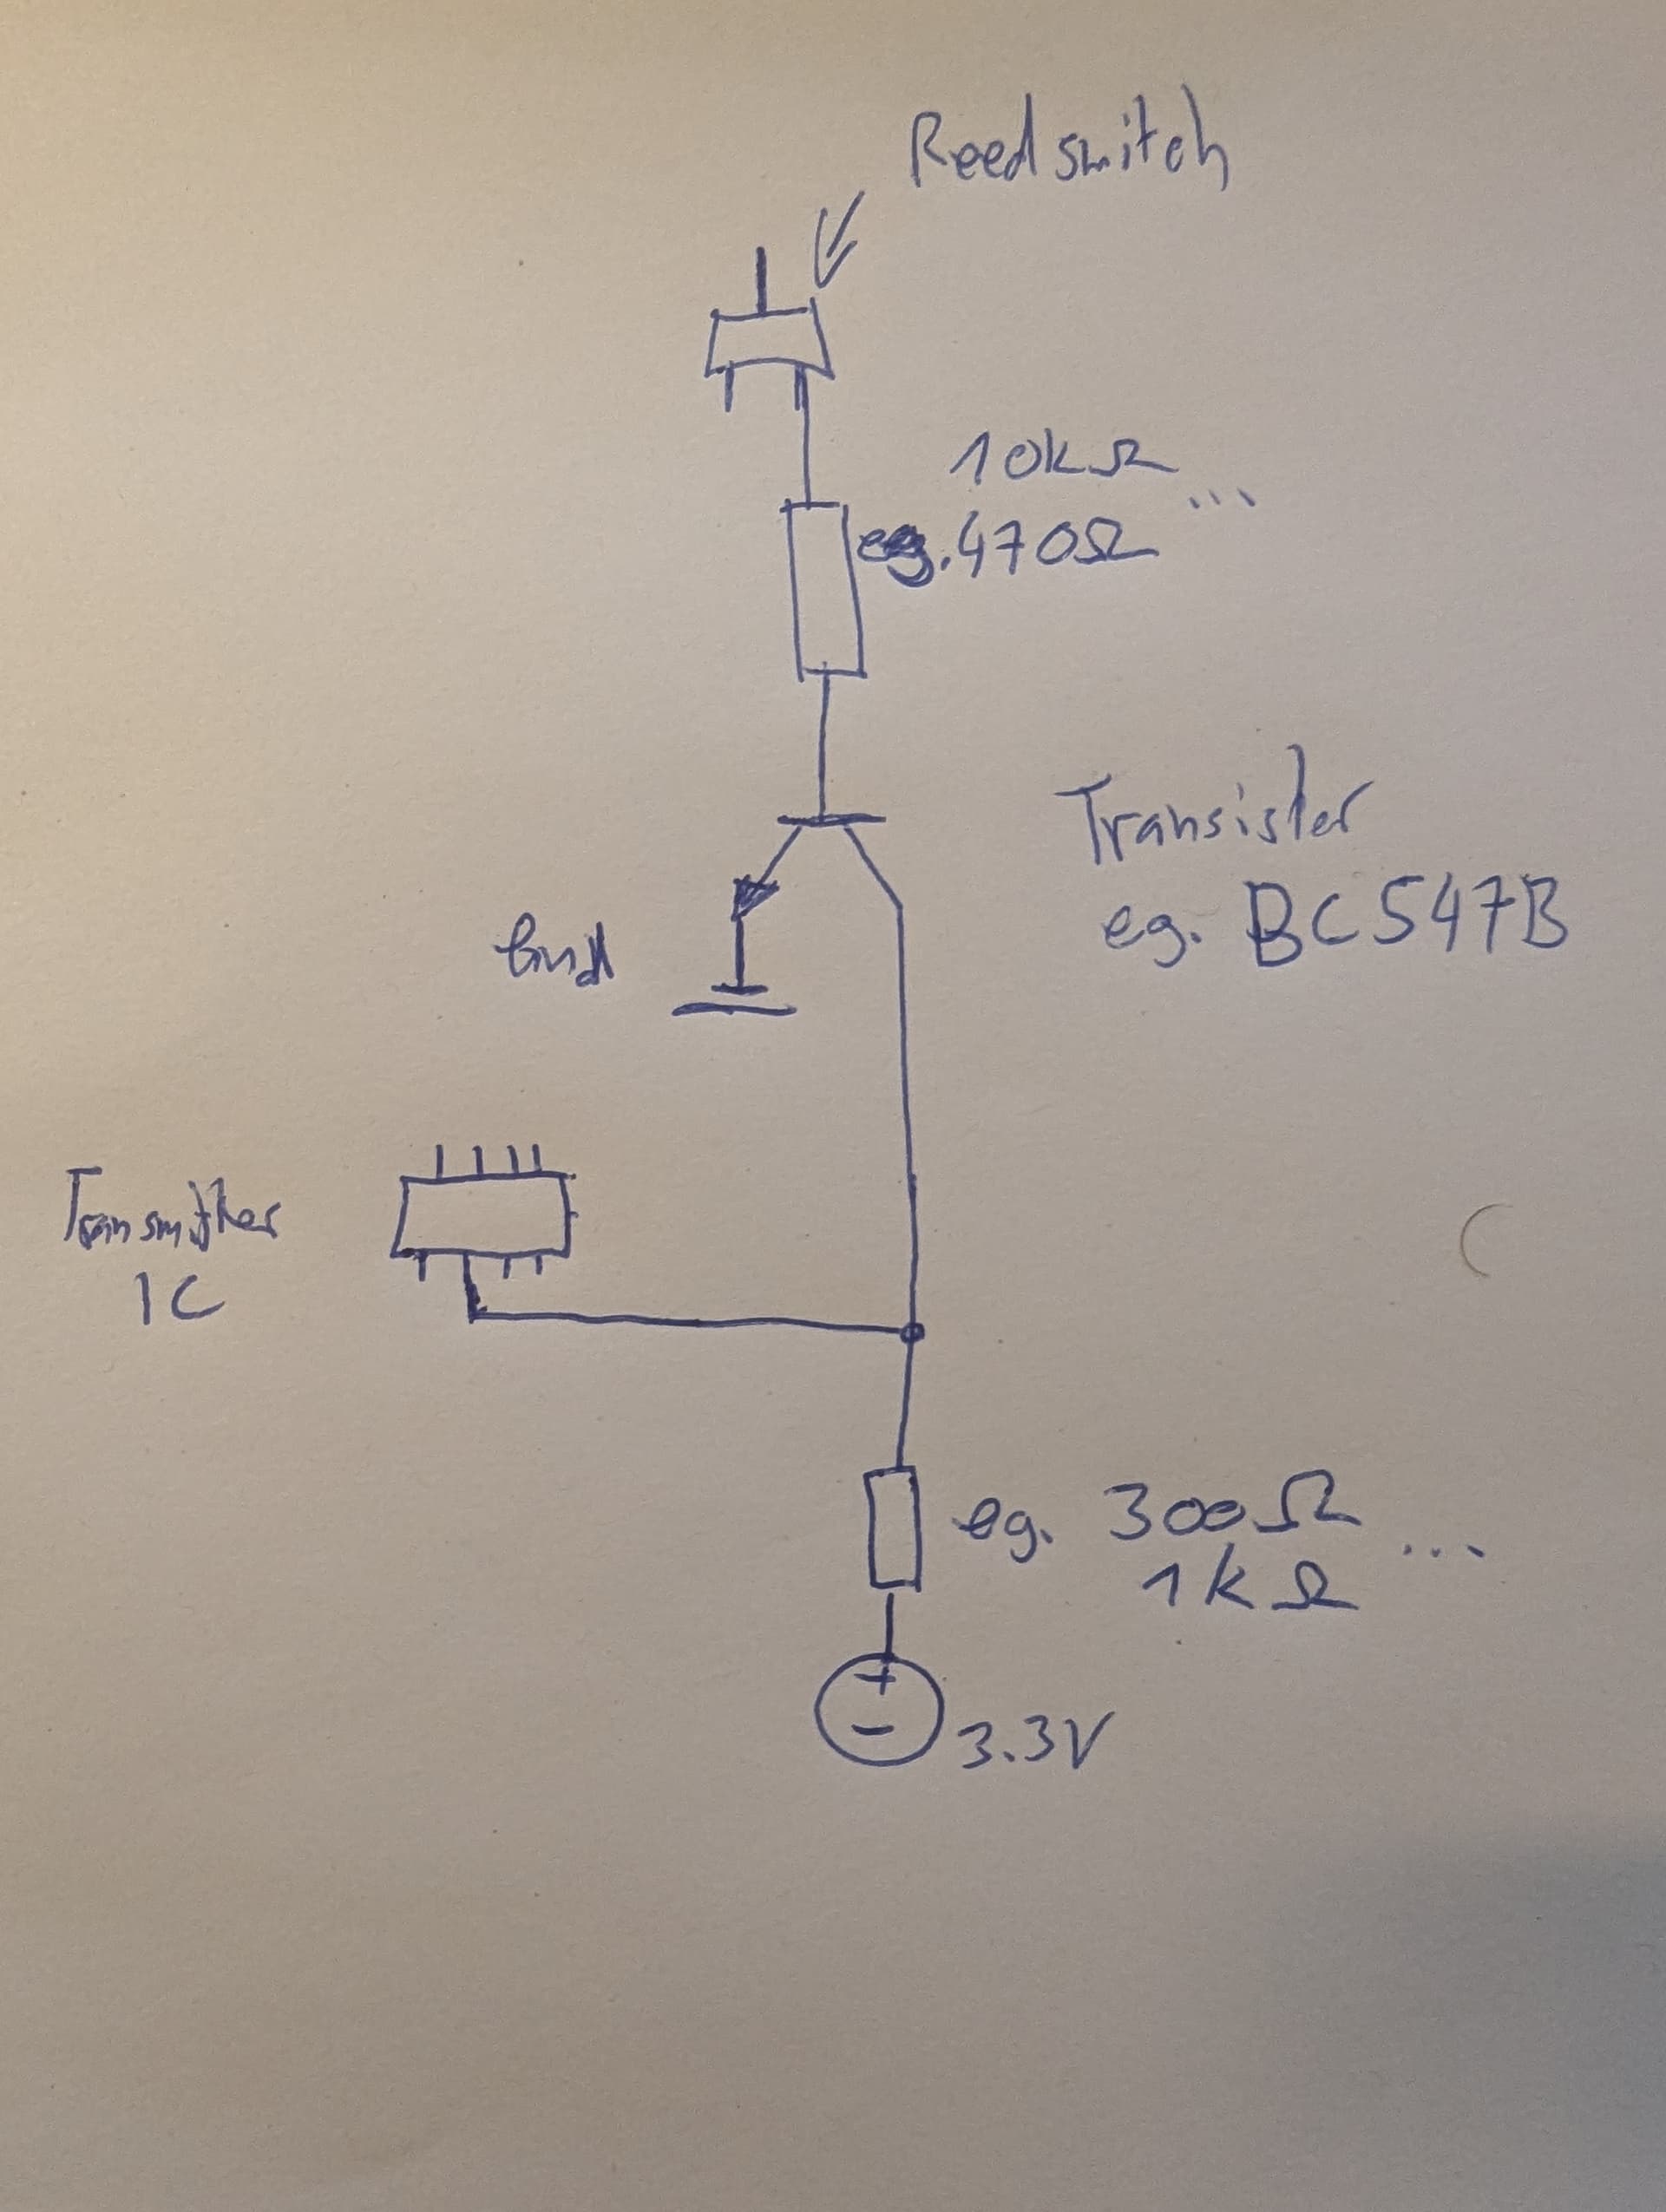 Reedswitch
10kΩ
eg. 470Ω ...
Transistor
eg. BC547B
Gnd
Transmitter
IC
eg. 300Ω
1kΩ ...
+
-
3.3V